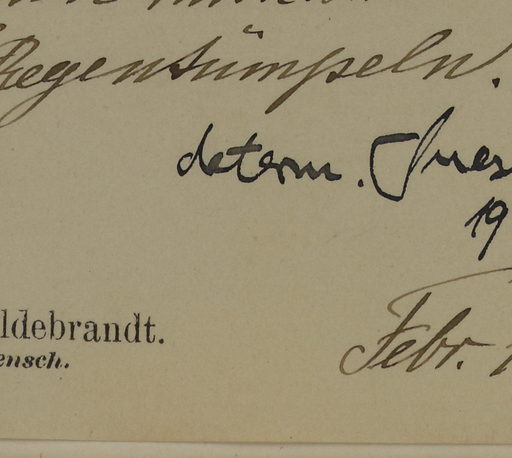 Regentümpeln.
determ.
19
ldebrandt.
ensch.
Febr. 1